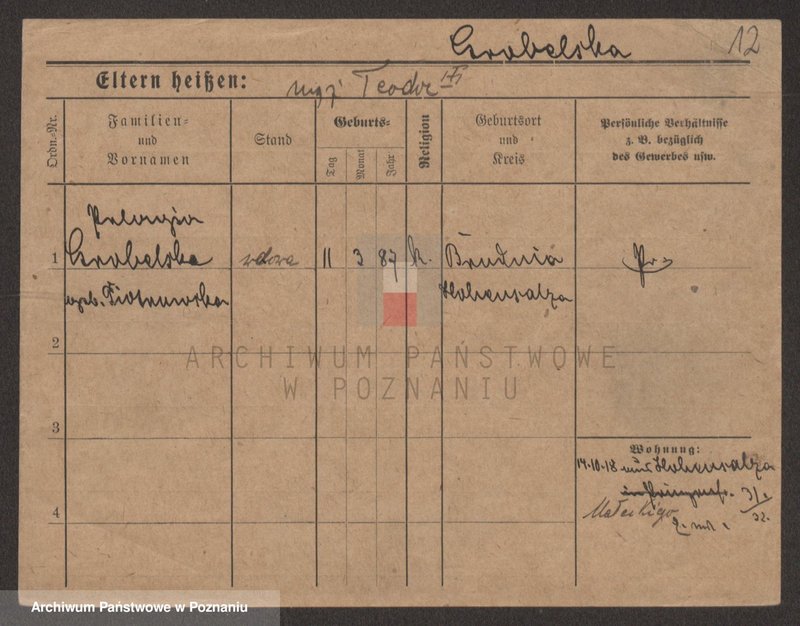 Grobelska 12
Eltern heißen: mąż Teodor
Ordn.-Nr.
Familien-
und
Vornamen
Stand
Geburts-
Tag
Monat
Jahr
Religion
Geburtsort
und
Kreis
Persönliche Verhältnisse
z. B. bezüglich
des Gewerbes usw.
Pelagia
1 Grobelska wdowa 11 3 87 k. Brudnia Pr.
geb. Piotrowska Hohensalza
2
ARCHIWUM PAŃSTWOWE
W POZNANIU
3
Wohnung:
14.10.18 aus Hohensalza
31./32.
Matejkigo
4
Archiwum Państwowe w Poznaniu